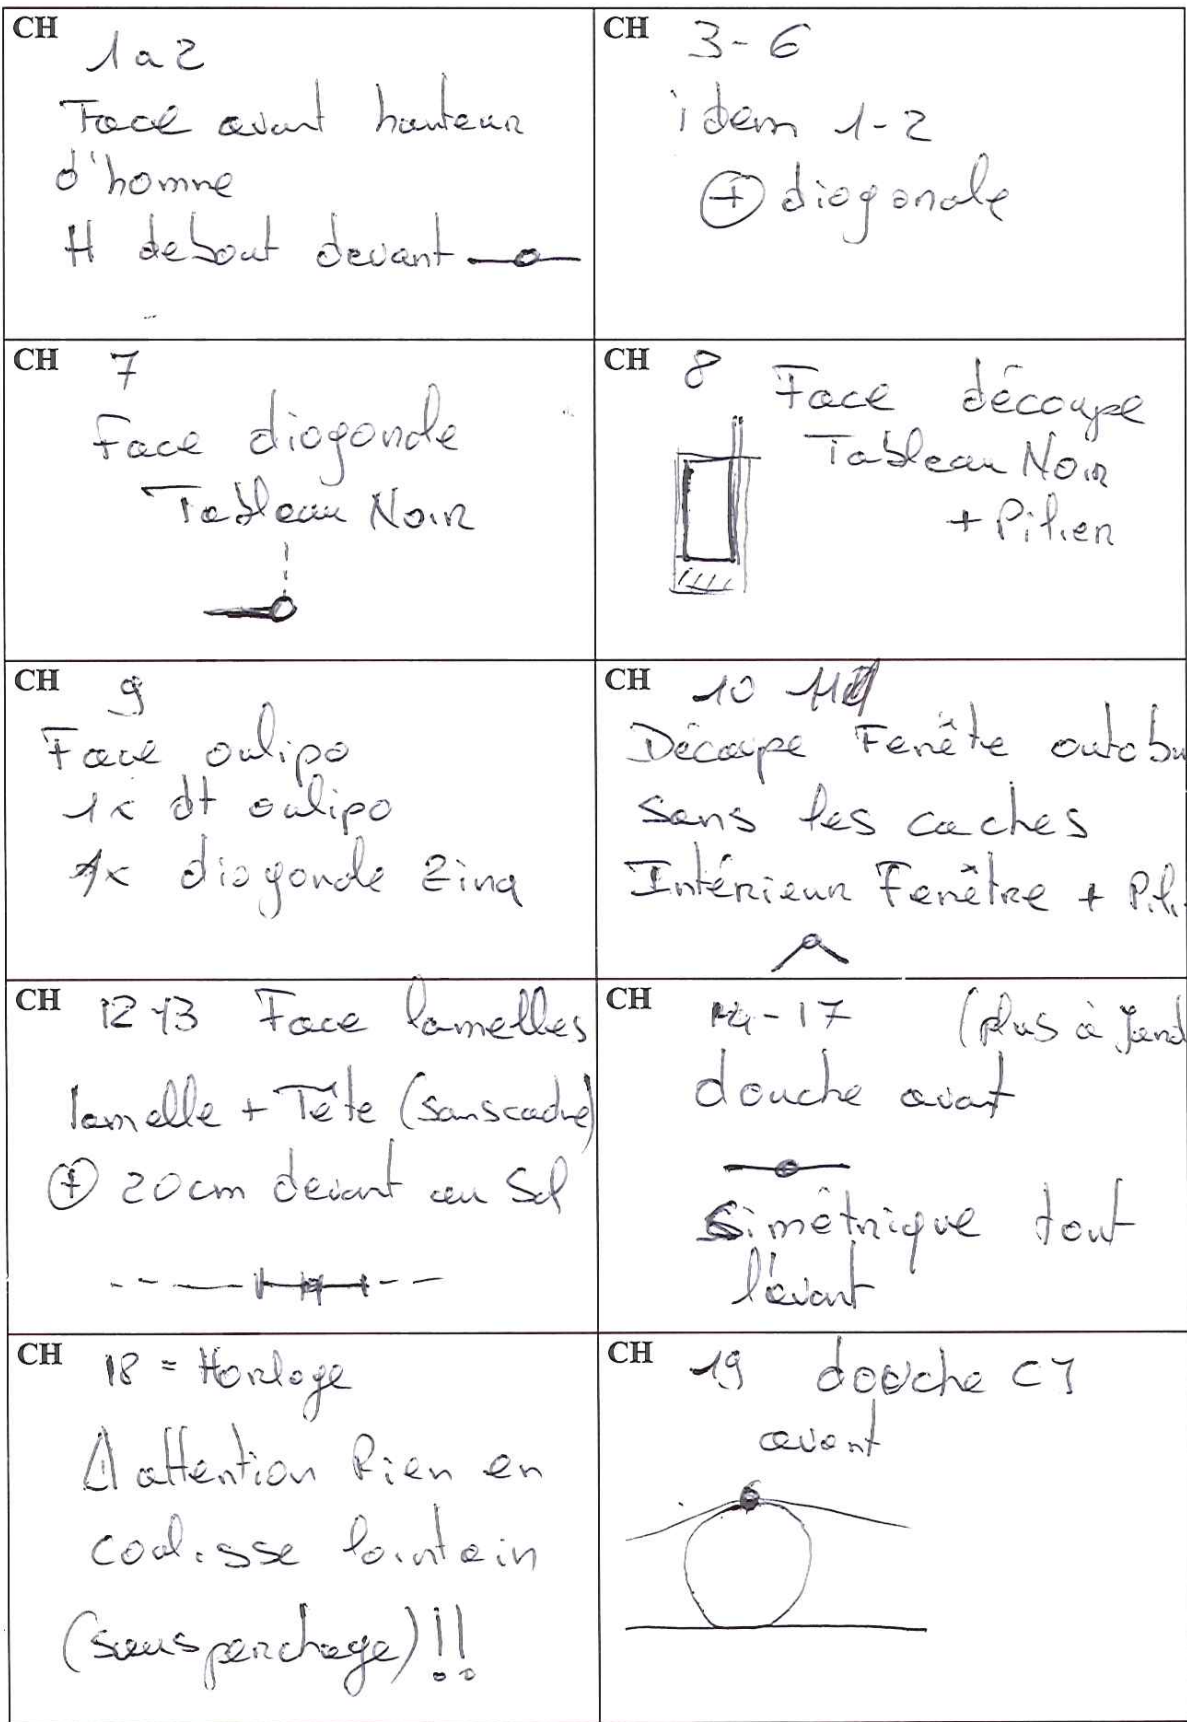 CH 1 a 2
Face avant hauteur
d'homme
H debout devant
CH 3-6
idem 1-2
+ diagonale
CH 7
Face diagonale
Tableau Noir
CH 8 Face découpe
Tableau Noir
+ Pilier
CH 9
Face oulipo
1x dt oulipo
1x diagonale Zinq
CH 10
Découpe Fenête autobu
sans les caches
Intérieur Fenêtre + Pili
CH 12 13 Face lamelles
lamelle + Tête (sans cadre)
+ 20cm devant au Sol
CH 14-17 (plus à Jard
douche avant
Simétrique tout
l'avant
CH 18 = Horloge
attention Rien en
coulisse lointain
(sous perchage)!!
CH 19 douche CJ
avant